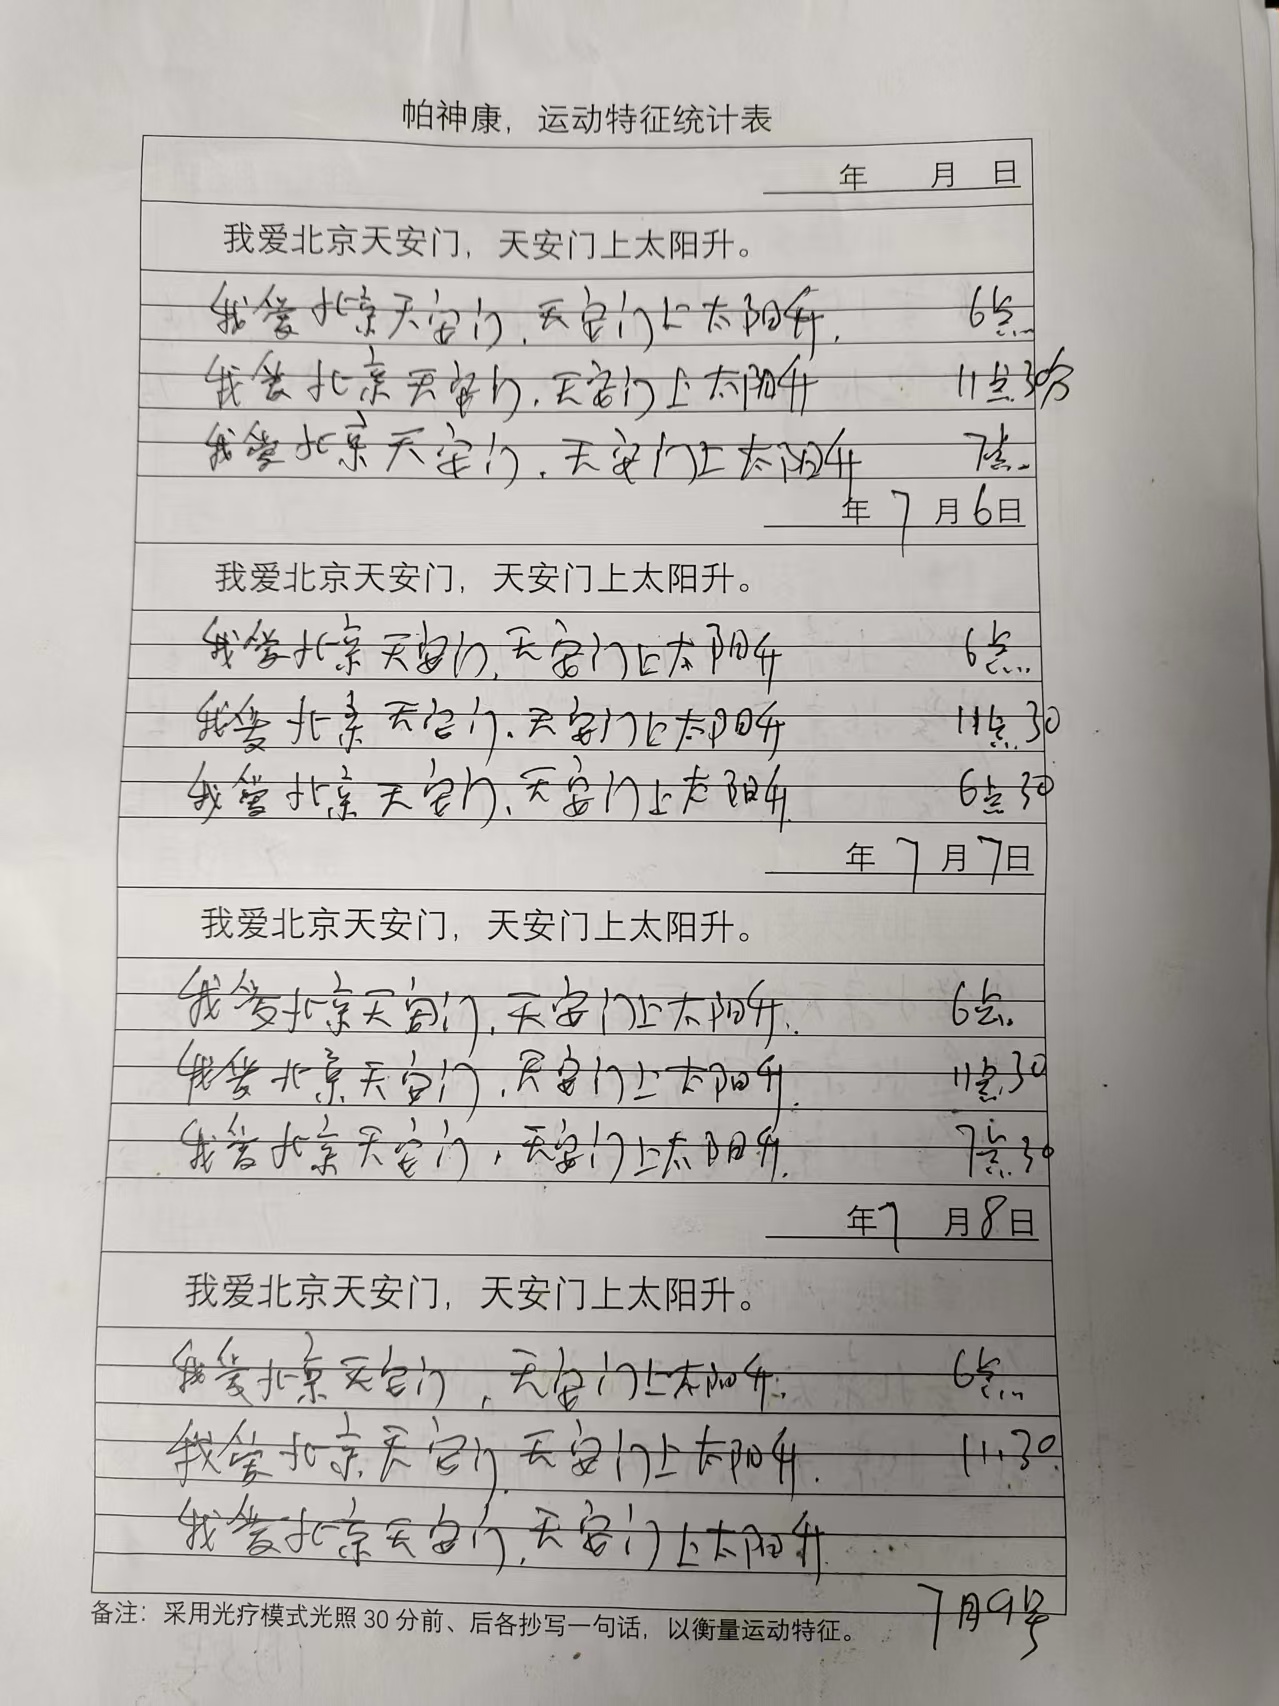 帕神康，运动特征统计表
年 月 日
我爱北京天安门，天安门上太阳升。
我爱北京天安门，天安门上太阳升. 6点
我爱北京天安门，天安门上太阳升 11点30分
我爱北京天安门，天安门上太阳升 7点
年 7 月 6 日
我爱北京天安门，天安门上太阳升。
我爱北京天安门，天安门上太阳升 6点
我爱北京天安门，天安门上太阳升 11点30
我爱北京天安门，天安门上太阳升. 6点30
年 7 月 7 日
我爱北京天安门，天安门上太阳升。
我爱北京天安门，天安门上太阳升. 6点
我爱北京天安门，天安门上太阳升. 11点30
我爱北京天安门，天安门上太阳升. 7点30
年 7 月 8 日
我爱北京天安门，天安门上太阳升。
我爱北京天安门，天安门上太阳升. 6点
我爱北京天安门，天安门上太阳升. 11:30
我爱北京天安门，天安门上太阳升.
7月9号
备注：采用光疗模式光照 30 分前、后各抄写一句话，以衡量运动特征。